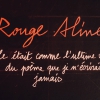 Rouge Aline
le était comme l'ultime
du poème que je n'écrirai
jamais